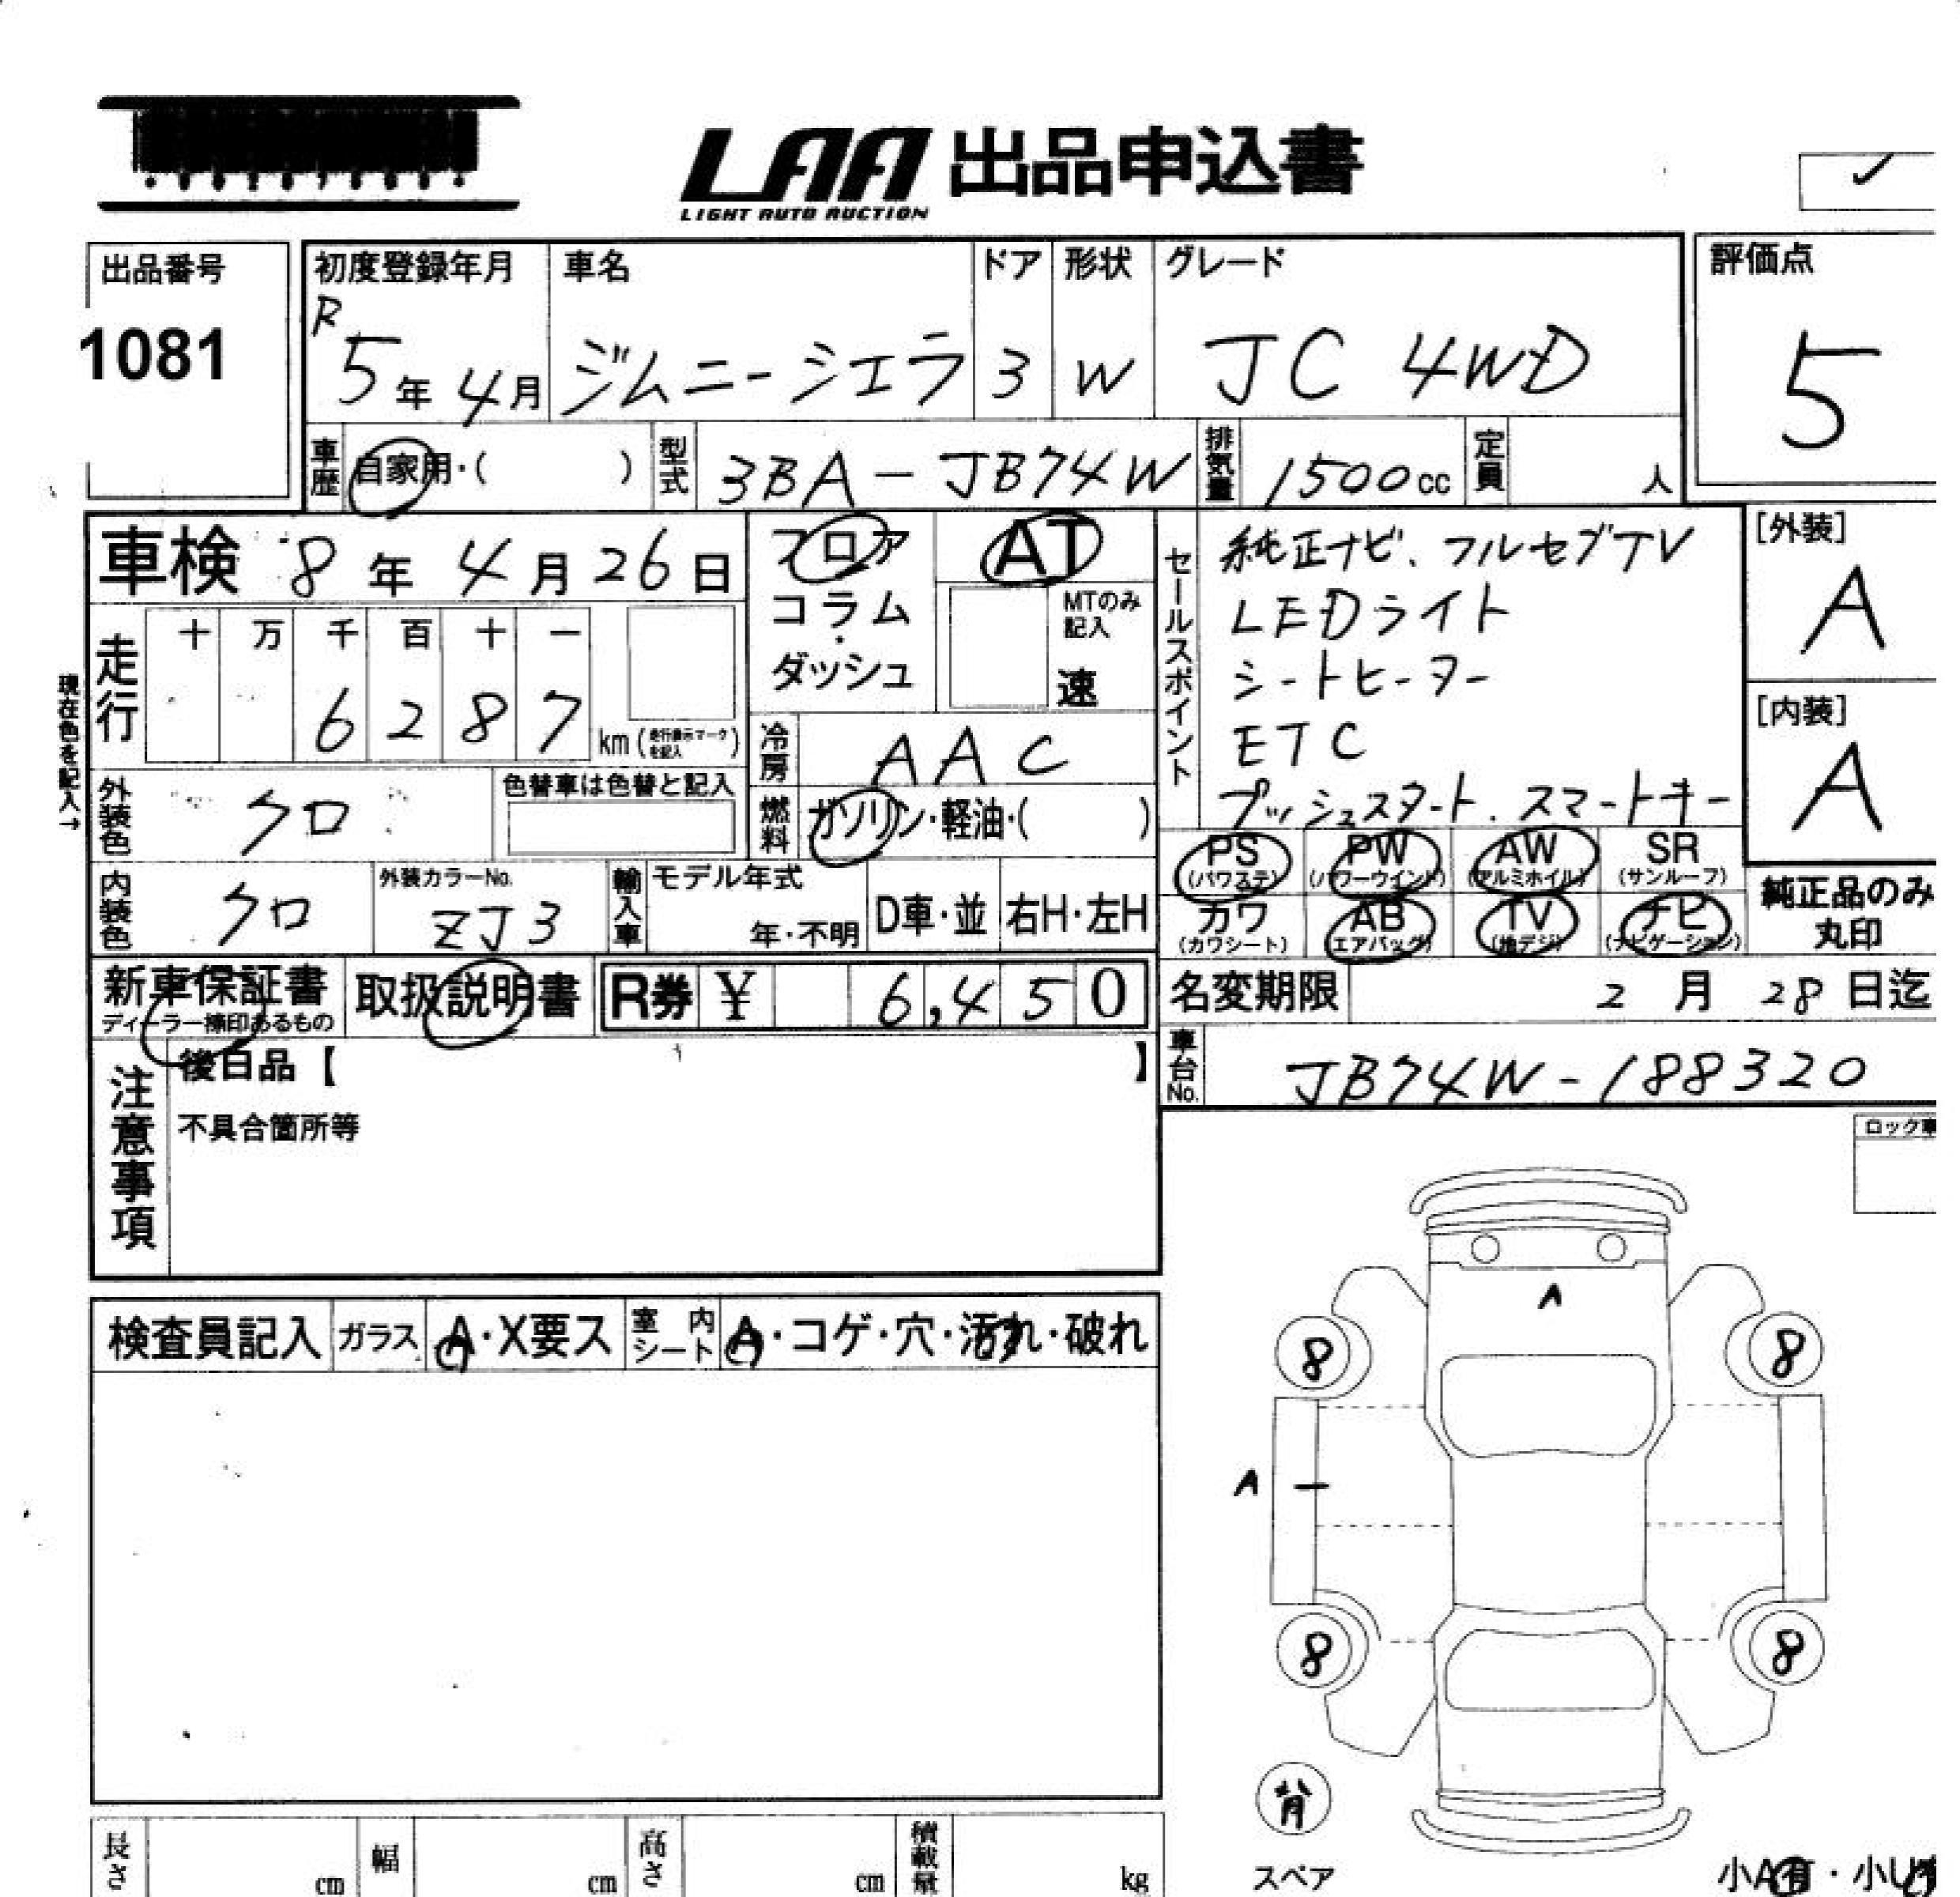 LAA 出品申込書
LIGHT AUTO AUCTION
出品番号
1081
初度登録年月
R
5年 4月
車名
ジムニーシエラ
ドア
3
形状
W
グレード
JC 4WD
評価点
5
車歴
自家用・( )
型式
3BA-JB74W
排気量
1500cc
定員
人
車検 8年 4月 26日
フロア
コラム
・
ダッシュ
AT
MTのみ
記入
速
セールスポイント
純正ナビ、フルセグTV
LEDライト
シートヒーター
ETC
プッシュスタート、スマートキー
[外装]
A
[内装]
A
現在色を記入→
走行
十 万 千 百 十 一
6 2 8 7
km (走行表示マークを記入)
冷房
AAC
外装色
クロ
色替車は色替と記入
燃料
ガソリン・軽油・( )
内装色
クロ
外装カラーNo.
ZJ3
輸入車
モデル年式
年・不明
D車・並
右H・左H
PS
(パワステ)
PW
(パワーウインド)
AW
(アルミホイル)
SR
(サンルーフ)
カワ
(カワシート)
AB
(エアバッグ)
TV
(地デジ)
ナビ
(ナビゲーション)
純正品のみ
丸印
新車保証書
ディーラー捺印あるもの
取扱説明書
R券 ¥ 6,450
名変期限 2月 28日迄
車台No.
JB74W-188320
注意事項
後日品【 】
不具合箇所等
ロック車
検査員記入
ガラス
A・X要ス
室内
シート
A・コゲ・穴・汚れ・破れ
A
8
8
A
8
8
背
スペア
小A有・小U有
長さ
cm
幅
cm
高さ
cm
積載量
kg